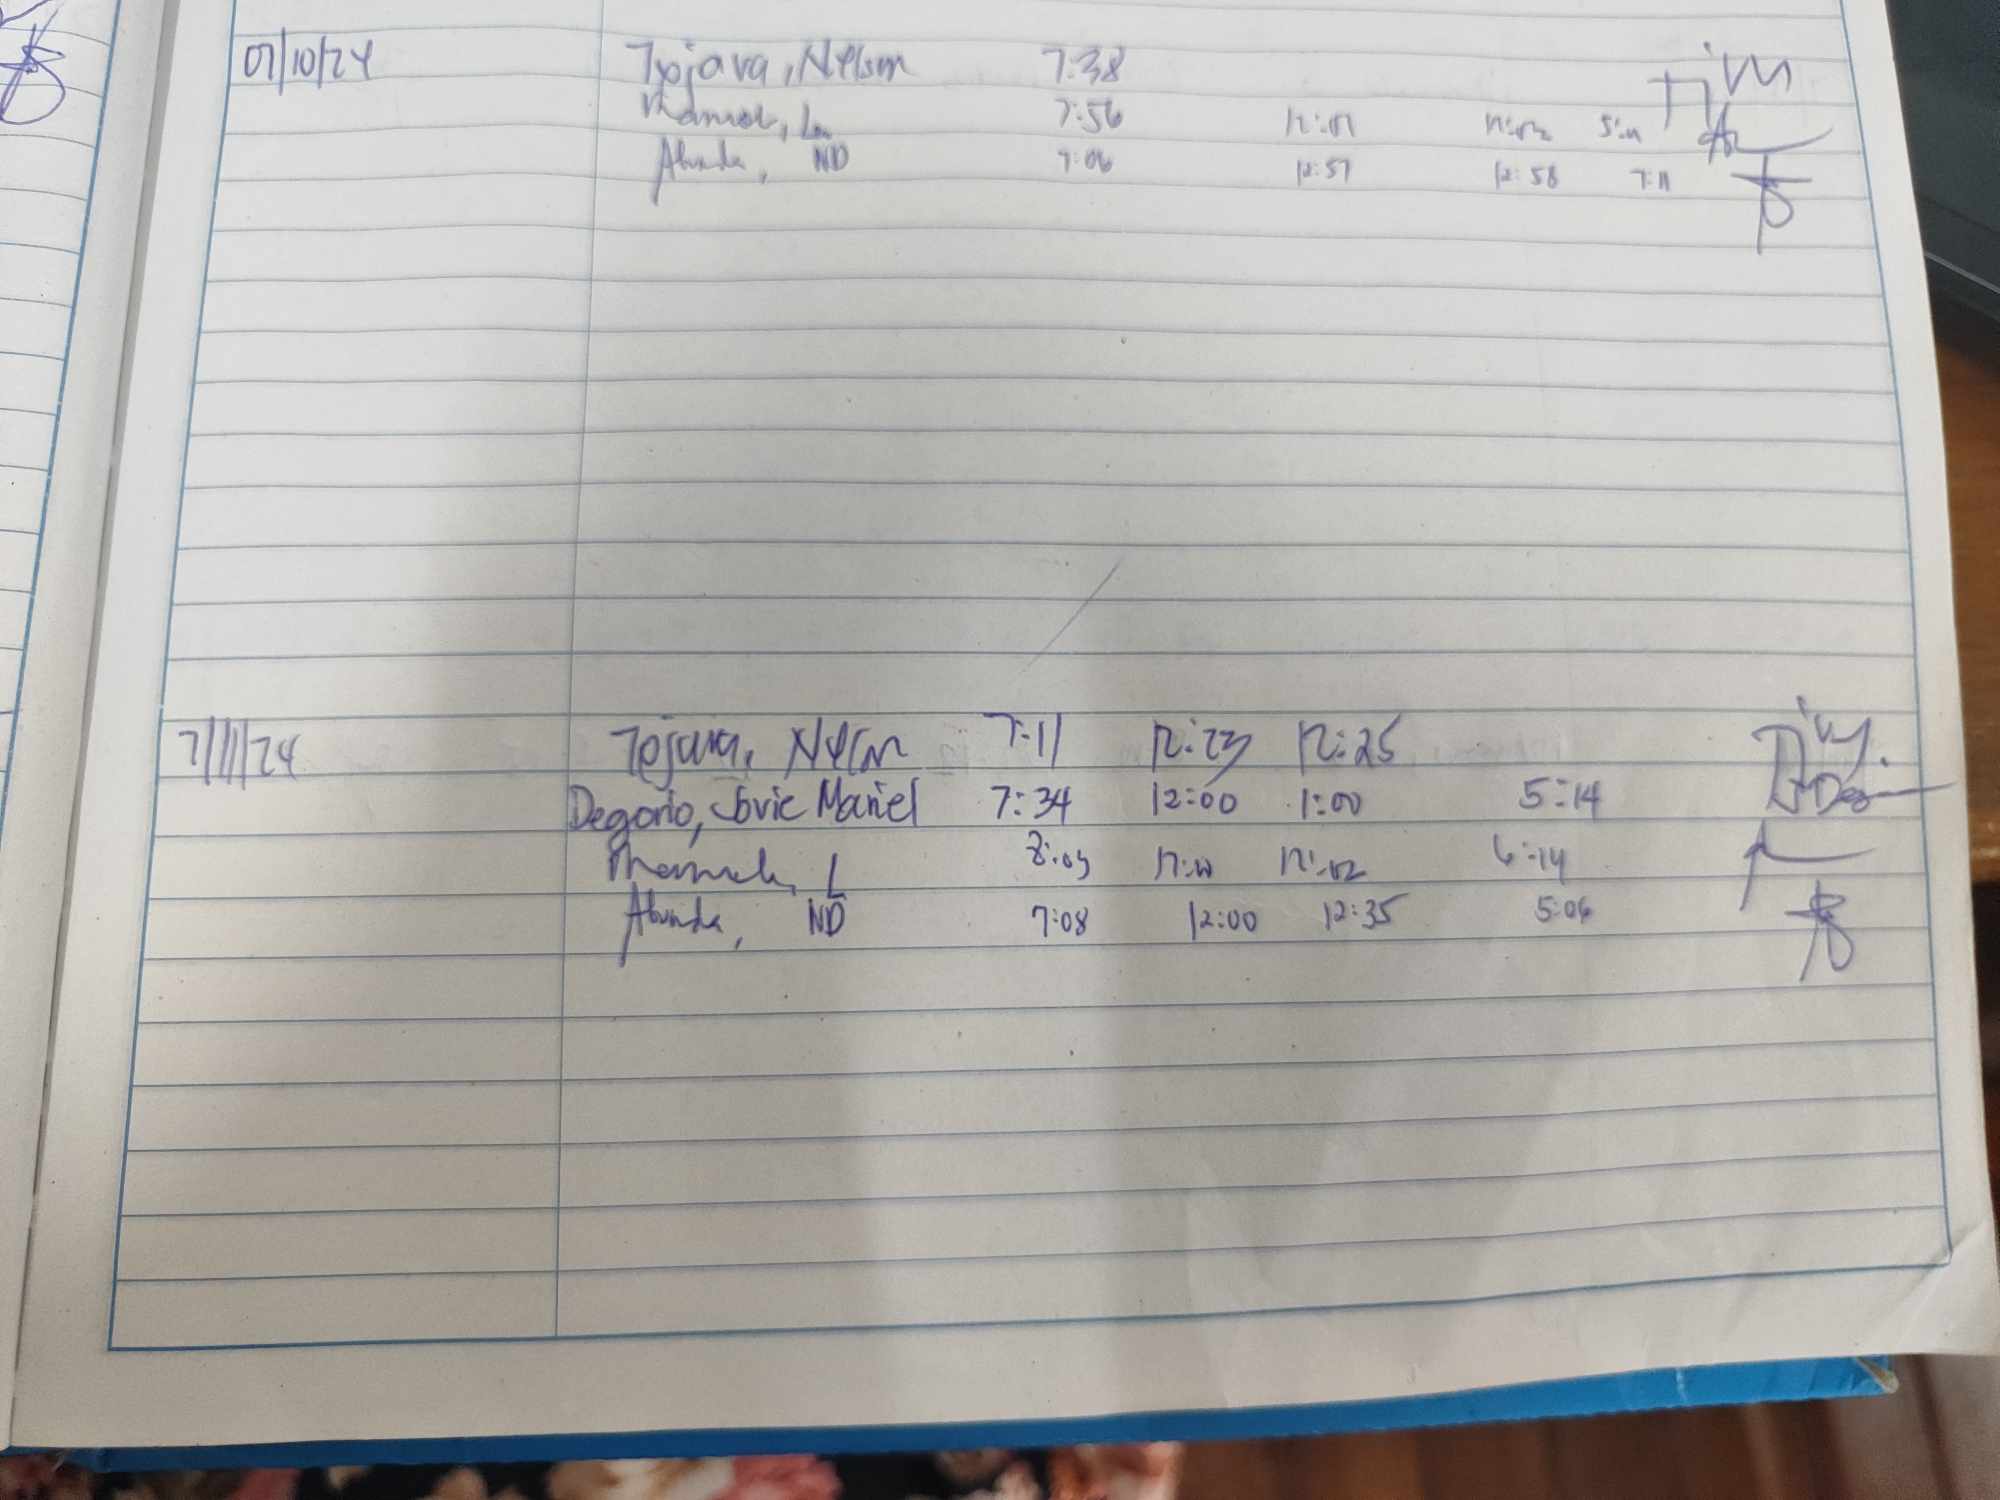 07/10/24 Tojava, Nelson 7:38
7:56 5:11
Abunda, ND 7:06 12:57 12:58 7:11
7/11/24 Tojava, Nelson 7:11 12:23 12:25
Degorio, Jovie Mariel 7:34 12:00 1:00 5:14
L 8:03 12:02 6:14
Abunda, ND 7:08 12:00 12:35 5:06